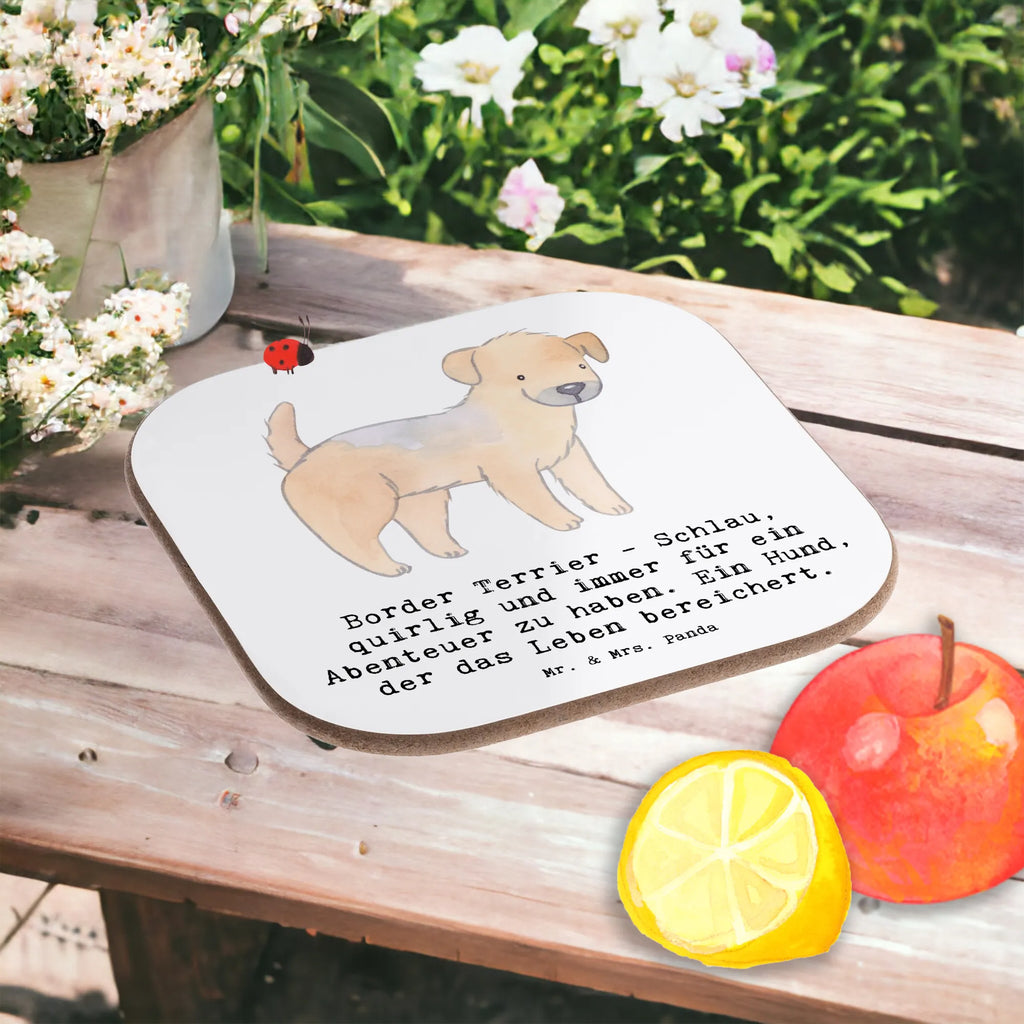 Border Terrier - Schlau,
quirlig und immer für ein
Abenteuer zu haben. Ein Hund,
der das Leben bereichert.
Mr. & Mrs. Panda